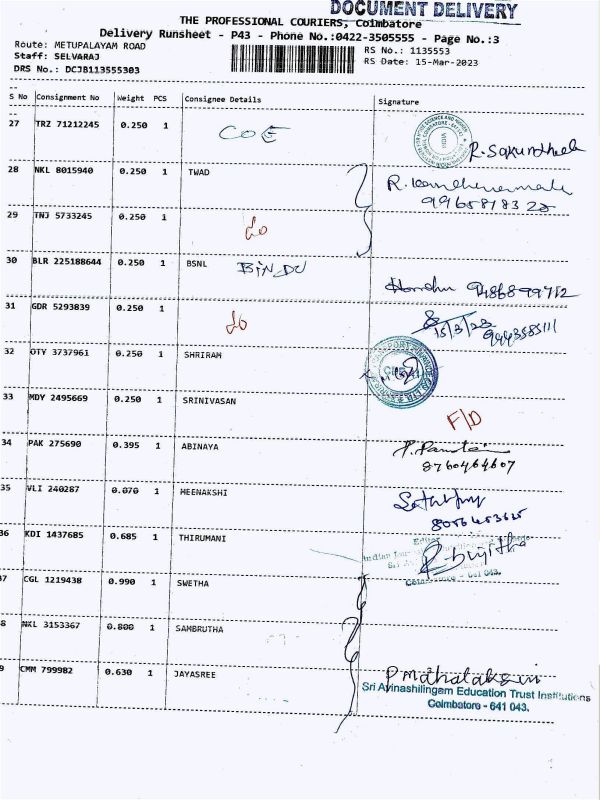 DOCUMENT DELIVERY
THE PROFESSIONAL COURIERS, Coimbatore
Delivery Runsheet - P43 - Phone No.:0422-3505555 - Page No.:3
Route: METUPALAYAM ROAD
RS No.: 1135553
Staff: SELVARAJ
RS Date: 15-Mar-2023
DRS No.: DCJB113555303
S No Consignment No Weight PCS Consignee Details Signature
27 TRZ 71212245 0.250 1 COE
28 NKL 8015940 0.250 1 TWAD
29 TNJ 5733245 0.250 1
30 BLR 225188644 0.250 1 BSNL BINDU 9486899712
31 GDR 5293839 0.250 1 15/3/23
9443585111
32 OTY 3737961 0.250 1 SHRIRAM
33 MDY 2495669 0.250 1 SRINIVASAN F/D
34 PAK 275690 0.395 1 ABINAYA
8760464607
35 VLI 240287 0.070 1 MEENAKSHI
36 KDI 1437685 0.685 1 THIRUMANI
Coimbatore - 641 043.
37 CGL 1219438 0.990 1 SWETHA
8 NKL 3153367 0.800 1 SAMBRUTHA
9 CMM 799982 0.630 1 JAYASREE P Mahalakshmi
Sri Avinashilingam Education Trust Institutions
Coimbatore - 641 043.